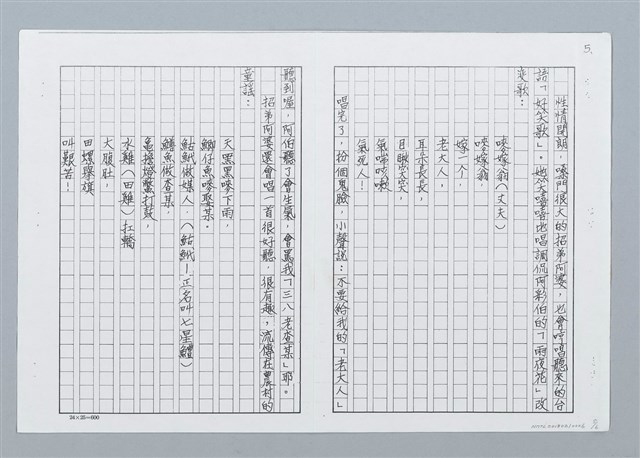 5.
性情開朗，嗓門很大的招弟阿婆，也會哼唱聽來的台
語「好笑歌」。她大嗓嗓地唱調侃阿彩伯的「雨夜花」改
變歌：
嘜嫁翁（丈夫）
嘜嫁翁，
嫁一个，
老大人，
耳朵長長，
目瞅突突，
氣喘咳嗽
氣死人！
唱完了，扮個鬼臉，小聲說：不要給我的「老大人」
聽到喔，阿伯聽了會生氣，會罵我「三八老查某」耶。
招弟阿婆還會唱一首很好聽，很有趣，流傳在農村的
童謠：
天黑黑嘜下雨，
鯽仔魚嘜娶某，
鮎鮘做媒人，（鮎鮘－正名叫七星鱧）
鱔魚做查某，
龜擔燈鱉打鼓，
水雞（田雞）扛轎
大腹肚，
田螺舉旗
叫艱苦！
24×25=600